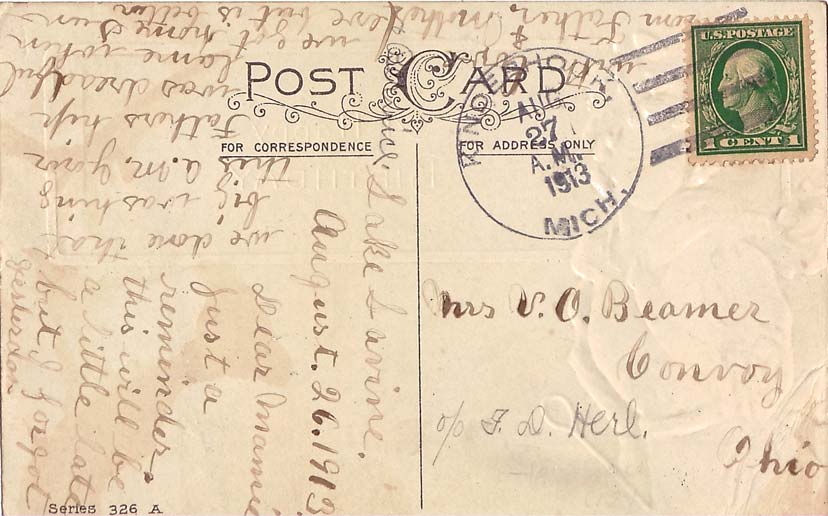 POST CARD
FOR CORRESPONDENCE
FOR ADDRESS ONLY
U.S. POSTAGE
1 CENT 1
AUG
27
A.M.
1913
MICH.
Mrs V. O. Beamer
Convoy
c/o F. D. Herl.
Ohio
Lake Lavine.
August. 26. 1913
Dear Mamie
Just a
reminder.
this will be
a little late
but I forgot
yesterday
we done that
big washing
this a.m. your
Fathers hip
was dreadful
lame when
we got home Sun
eve but is better
from Father, Mother
&
Series 326 A